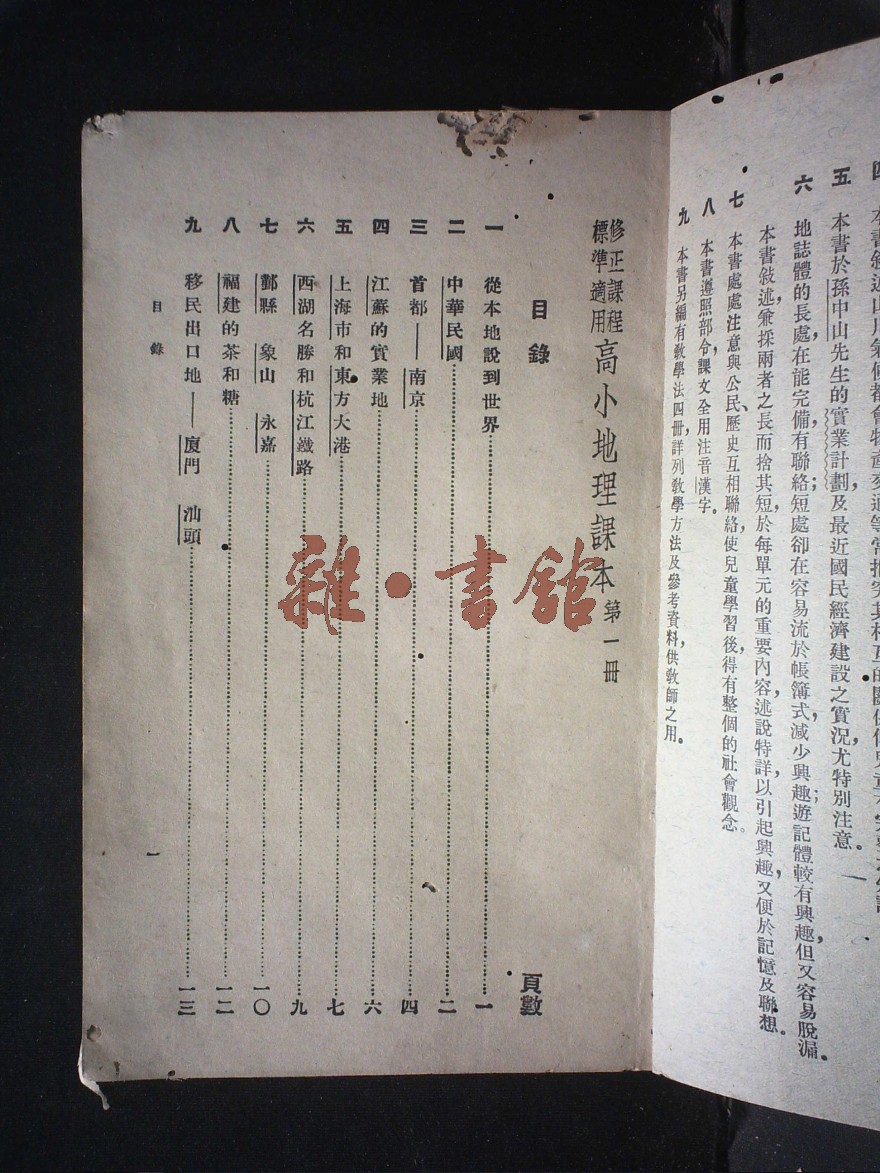 五 本書於孫中山先生的實業計劃及最近國民經濟建設之實況,尤特別注意。
六 地誌體的長處,在能完備有聯絡;短處卻在容易流於帳簿式,減少興趣;遊記體較有興趣,但又容易脫漏。
本書敍述,兼採兩者之長而捨其短,於每單元的重要內容,述說特詳,以引起興趣,又便於記憶及聯想。
七 本書處處注意與公民、歷史互相聯絡,使兒童學習後,得有整個的社會觀念。
八 本書遵照部令,課文全用注音漢字。
九 本書另編有教學法四冊,詳列教學方法及參考資料,供教師之用。
修正課程
標準適用
高小地理課本 第一冊
目錄
頁數
一 從本地說到世界……一
二 中華民國……二
三 首都——南京……四
四 江蘇的實業地……六
五 上海市和東方大港……七
六 西湖名勝和杭江鐵路……九
七 鄞縣 象山 永嘉……一〇
八 福建的茶和糖……一二
九 移民出口地——廈門 汕頭……一三
目錄
一
雜·書館